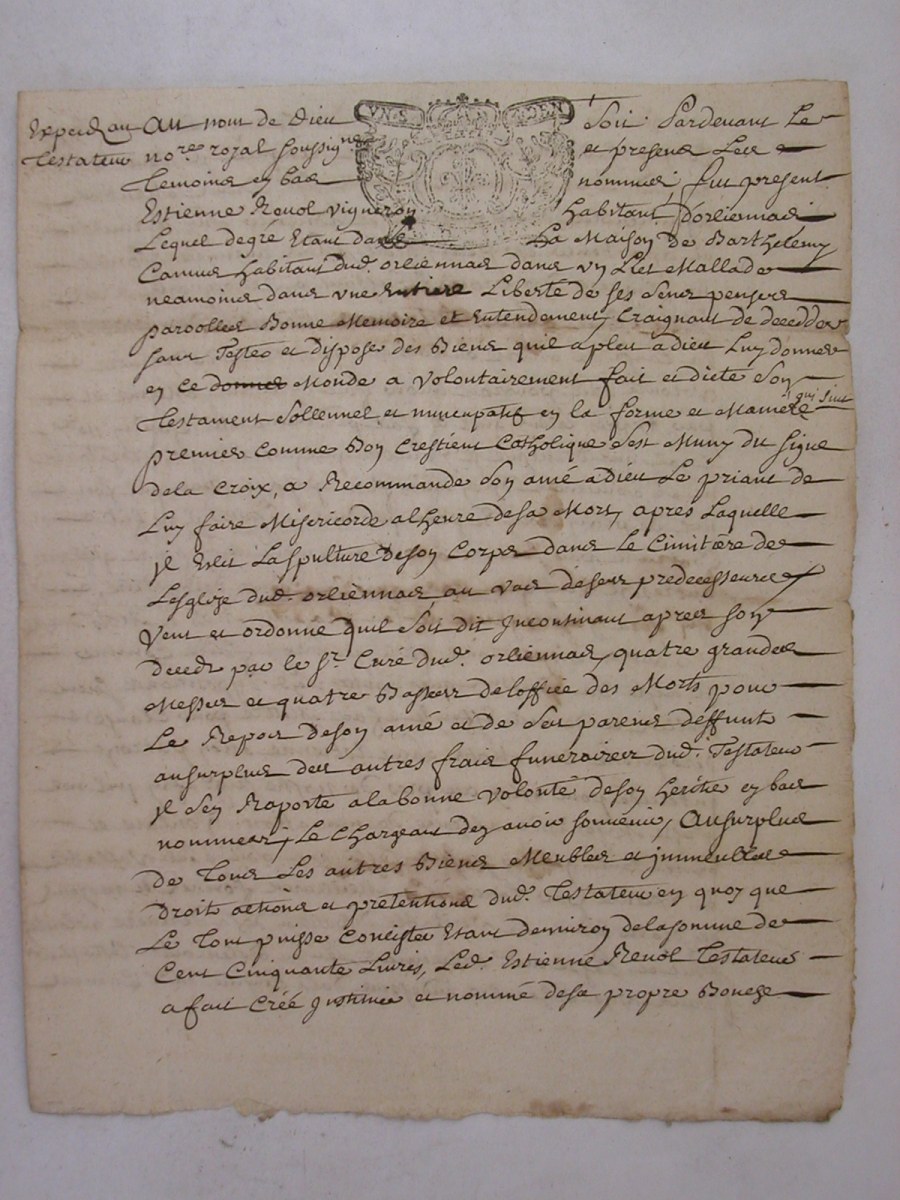 Expedié au Au nom de Dieu Soit Pardevant Le
Testateur no.re royal soussigné et presens Les
Temoins en bas nommés, fut present
Estienne Revol vigneron habitant d'orliennas
Lequel degré Etant dans La Maison de Barthelemy
Camus habitant dud. orliennas dans un Liet Mallade
neamoins dans une Entiere Liberté de ses Sens pensers
parolles Bonne Memoire et Entendement, Craignant de decedder
sans Tester et dispose des Biens quil a pleu a dieu Luy donner
en Ce donner Monde a volontairement fait et dicté Son
Testament Sollennel et nuncupatif en la forme et Maniere qui suit
premier Comme Bon Crestient Catholique Sest Muny du signe
dela Croix, a Recommande Son amé a dieu Le priant de
Luy faire Misericorde alheure desa Mort, apres Laquelle
jl Eslit La Spulture Deson Corps dans le Cimitære de
Lesglize dud. orliennas au vas deses predecesseurs
Veut et ordonne quil Soit dit Incontinant apres son
Decedz par le Sr. Curé dud. orliennas, quatre grandes
Messes et quatre Basses deloffice des Morts pour
Le Repos deson amé et de Ses parens deffunts
ausurplus des autres frais funeraires dud. Testateur
jl Sen Raporte alabonne volonte deson heritié en bas
nommer, Le Chargeant den avoir souvenir, Ausurplus
de Tous Les autres Biens Meubles et jmmeubles
Droit actions et pretentions dud. Testateur en quoy que
Le Tout puisse Concister Estant denviron delasomme de
Cent Cinquante Livres, Led. Estienne Revol Testateur
a fait Créé Institué et nommé desa propre Bouche